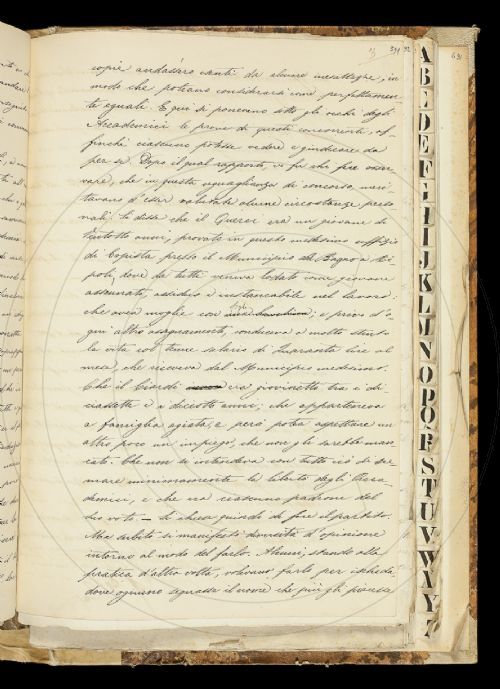 391
copie andassero esenti da alcune mesattezze, in
modo che poteano considerarsi come perfettamen-
te eguali. E qui si ponevano sotto gli occhi degli
Accademici le prove di questi concorrenti, af-
finchè ciascuno potesse vedere e giudicare da
per se. Dopo il qual rapporto, vi fu chi fece osser-
vare, che in questa uguaglianza di concorso meri-
tavano d'esser valutate alcune circostanze perso-
nali: si disse che il Querci era un giovane di
ventotto anni, provato in questo medesimo uffizio
di Copista presso il Municipio del Bagno a Ri-
poli, dove da tutti veniva lodato come giovane
assennato, assiduo e instancabile nel lavoro:
che aven moglie con figli; e privo d'o-
gni altro assegnamento, conduceva a molto stento
la vita col tenue salario di Quaranta lire al
mese, che riceveva dal Municipio medesimo.
Che il Ciardi era giovinetto tra i di-
ciassette e i diciotto anni; che apparteneva
a famiglia agiata, e però potea aspettare un
altro poco un impiego, che non gli sarebbe man-
cato. Che non si intendeva con tutto ciò di sce-
mare minimamente la libertà degli Acca-
demici, e che era ciascuno padrone del
suo voto. – Si chiese quindi di fare il partito.
Ma subito si manifestò diversità d'opinione
intorno al modo del farlo. Alcuni, stando alla
pratica d'altre volte, volevano farlo per ischede,
dove ognuno segnasse il nome che più gli paresse
A
B
C
D
E
F
G
H
I
J
K
L
M
N
O
P
Q
R
S
T
U
V
W
X
Y
Z